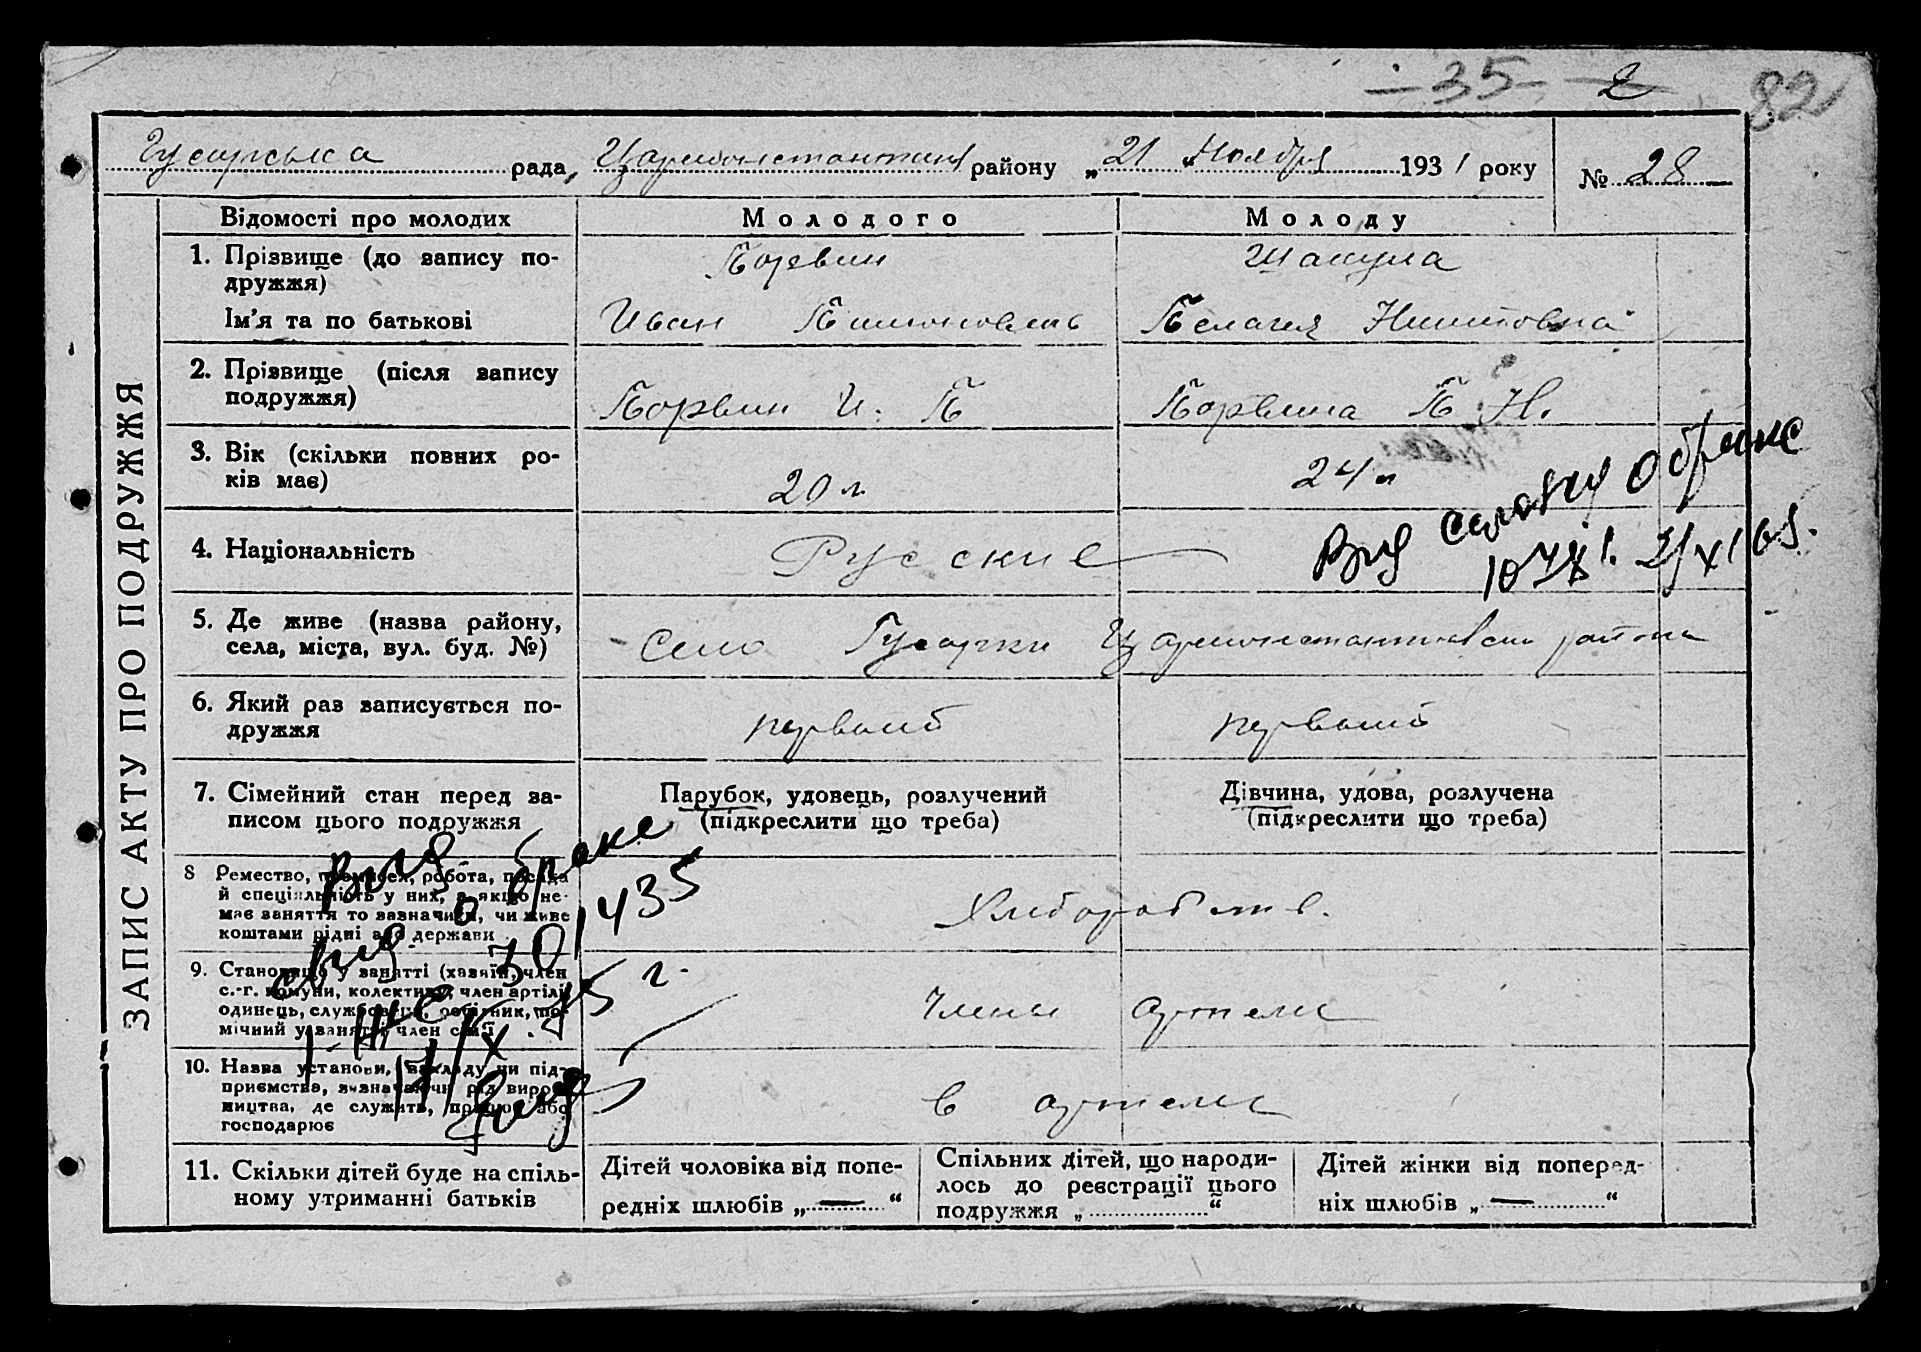 35 2 82
Гусарська рада, Царевоконстантин району „21„ Ноября 1931 року № 28
ЗАПИС АКТУ ПРО ПОДРУЖЖЯ
Відомості про молодих Молодого Молоду
1. Прізвище (до запису по-
дружжя)
Шакула
Ім'я та по батькові
Иван Пелагея Никитовна
2. Прізвище (після запису
подружжя)
И. П П. Н.
3. Вік (скільки повних ро-
ків має)
20 л. 24 л
4. Національність
Русские
5. Де живе (назва району,
села, міста, вул. буд. №)
Село Гусарки Царевоконстантиновский района
6. Який раз записується по-
дружжя
первый первый
7. Сімейний стан перед за-
писом цього подружжя
Парубок, удовець, розлучений
(підкреслити що треба)
Дівчина, удова, розлучена
(підкреслити що треба)
8 Ремество, промисел, робота, посада
й спеціяльність у них, а якщо не-
має заняття то зазначити, чи живе
коштами рідні або держави
Хлиборобств.
9. Становище у занятті (хазяїн, член
с.-г. комуни, колективу, член артілі
одинець, службовець, робітник, по-
мічний у занятті член сім'ї
Члены артели
10. Назва установи, закладу чи під-
приємства, зазначаючи рід вироб-
ництва, де служить, працює або
господарює
в артели
11. Скільки дітей буде на спіль-
ному утриманні батьків
Дітей чоловіка від попе-
редніх шлюбів „ — “
Спільних дітей, що народи-
лось до реєстрації цього
подружжя „ “
Дітей жінки від поперед-
ніх шлюбів „ — “
о браке
о браке